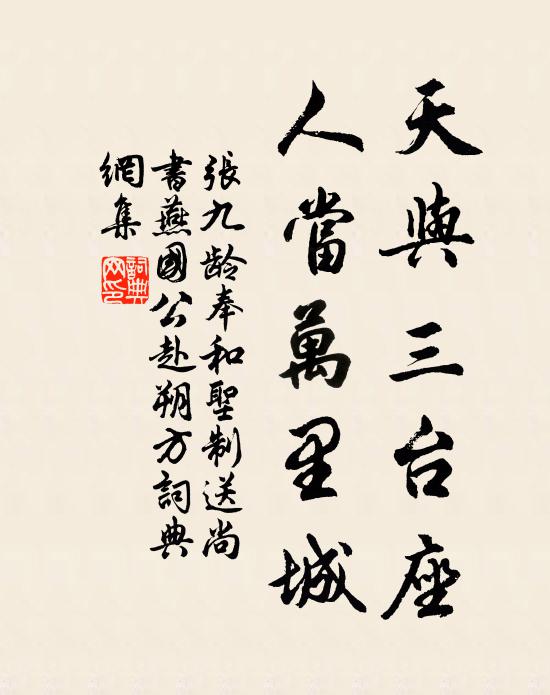 天與三台座
人當萬里城
張九齡奉和聖制送尚
書燕國公赴朔方詞典
網集
詞典網印